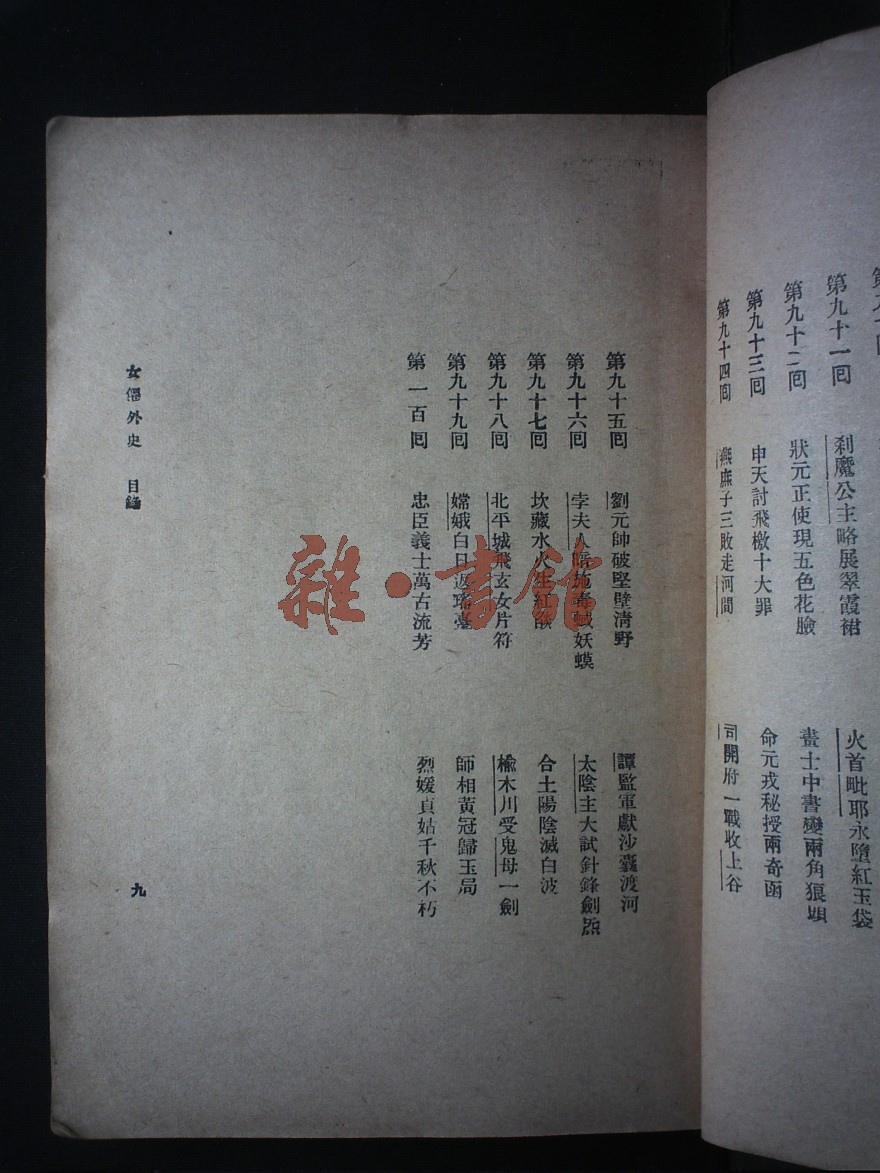 第九十一回 刹魔公主略展翠霞裙 火首毗耶永墮紅玉袋
第九十二回 狀元正使現五色花臉 畫士中書變兩角狼頭
第九十三回 申天討飛檄十大罪 命元戎秘授兩奇函
第九十四回 燕庶子三敗走河間 司開府一戰收上谷
第九十五回 劉元帥破堅壁淸野 譚監軍獻沙囊渡河
第九十六回 孛夫人施毒蜮妖蟆 太陰主大試針鋒劍炁
第九十七回 坎藏水火生紅 合土陽陰滅白波
第九十八回 北平城飛玄女片符 楡木川受鬼母一劍
第九十九回 嫦娥白日返瑤臺 師相黃冠歸玉局
第一百回 忠臣義士萬古流芳 烈媛貞姑千秋不朽
女僊外史 目錄
九
雜·書館